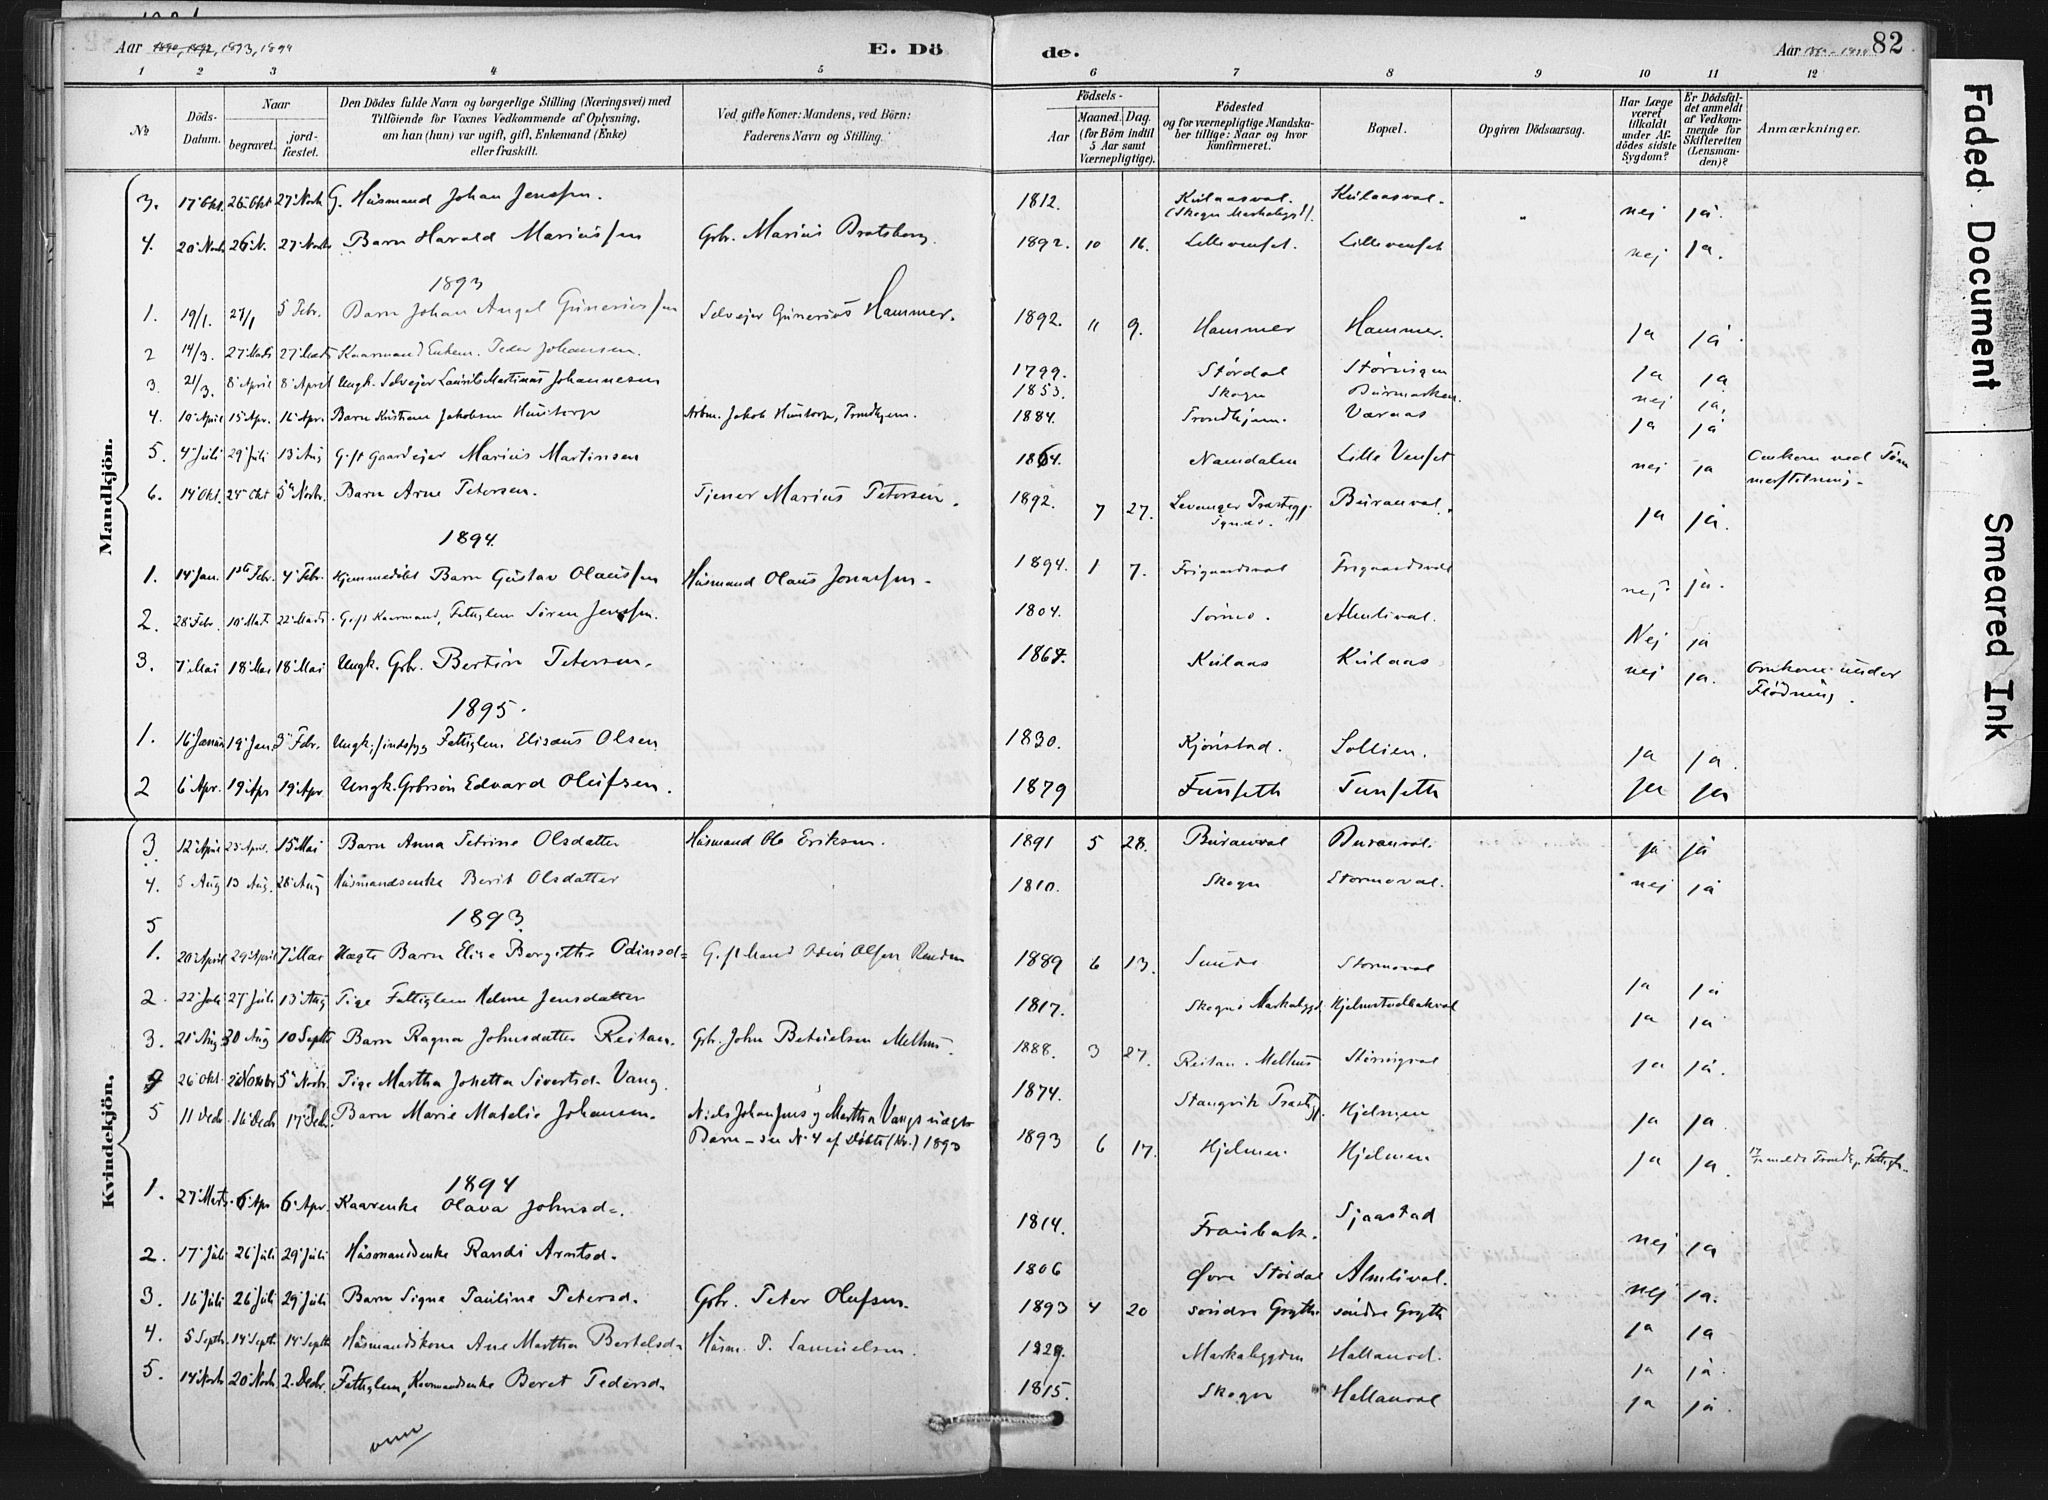 Aar 1890, 1892, 1893, 1894
E. Dö
de.
Aar
82
1 2 3 4 5 6 7 8 9 10 11 12
№
Döds-Datum.
Naar
begravet.
jord-fæstet.
Den Dödes fulde Navn og borgerlige Stilling (Næringsvei) med
Tilföiende for Voxnes Vedkommende af Oplysning,
om han (hun) var ugift, gift, Enkemand (Enke)
eller fraskilt.
Ved gifte Koner: Mandens, ved Börn:
Faderens Navn og Stilling.
Födsels-
Aar
Maaned. Dag.
(for Börn indtil
5 Aar samt
Værnepligtige).
Födested
og for værnepligtige Mandska-
ber tillige: Naar og hvor
konfirmeret.
Bopæl.
Opgiven Dödsaarsag.
Har Læge
været
tilkaldt
under Af-
dödes sidste
Sygdom?
Er Dödsfal-
det anmeldt
af Vedkom-
mende for
Skifteretten
(Lensman-
den)?
Anmærkninger.
Mandkjön.
3. 17 Okt. 26 Okt 27 Novb G. Husmand Johan Jenssen. 1812. (Skogn Markabygd). nej ja.
4. 20 Novb 26 N. 27 Novbr Barn Harald Mariussen Gbr. Marius Bratsberg. 1892. 10 16. Lillevenset. Lillevenset nej ja.
1893
1. 19/1. 27/1 5 Febr. Barn Johan Angel Guneriussen Selvejer Gunerius Hammer. 1892. 11 9. Hammer Hammer. ja ja
2 14/3. 27 Marts 27 Marts Kaarmand Enkem. Peder Johansen. 1799. Stördal ja ja
3. 21/3. 8 April 8 April Ungk. Selvejer Laurits Martinus Johannesen 1853. Skogn Burmarken. nej ja,
4. 10 April 15 Apr. 16 Apr. Barn Kristian Jakobsen Hustorpe Arbm. Jakob Hustorpe, Trondhjem. 1884. Trondhjem. Værnes ja ja
5. 4 Juli 29 Juli 13 Aug Gift Gaardejer Marius Martinsen 1864. Namdalen Lille Venset nej ja Omkom ved Töm
merflötning.
6. 14 Okt. 24 Okt 5 Novbr. Barn Arne Petersen. Tjener Marius Petersen. 1892. 7 27. Levanger Præstegj. Buranval. ja ja.
1894.
1. 14 Jan. 1ste Febr. 4 Febr. Hjemmedöbt Barn Gustav Olaussen Husmand Olaus Jonassen. 1894. 1 7. Frigaardsval Frigaardsval nej? ja.
2. 28 Febr. 10 Mat. 22 Marts. Gift Kaarmand, Fattiglem Sören Jenssen. 1804. Almlival. Nej ja
3. 7 Mai 18 Mai 18 Mai Ungk. Gbr. Bertin Petersen. 1867. Kulaas Kulaas nej ja. Omkom under
Flödning.
1895.
1. 16 Januar 19 Jan. 3 Febr. Ungk. sindssyg Fattiglem Elisæus Olsen 1830. Kjönstad. Sollien. ja ja.
2 6 Apr. 19 Apr 19 Apr Ungk. Gbrsön Edvard Olufsen. 1879 Tunseth Tunseth ja ja
Kvindekjön.
3. 12 April 23 April. 15 Mai Barn Anna Petrine Olsdatter Husmand Ole Eriksen. 1891 5 28. Buranval Buranval. ja ja
4. 5 Aug 13 Aug. 28 Aug Husmandsenke Berit Olsdatter 1810. Skogn Stormoval. nej ja
5 1893.
1. 20 April 29 April 7 Mai Uægte Barn Elise Bergitte Odinsd= Gift Mand Odin Olsen 1889 6 13. Sunde Stormoval ja ja
2. 22 Juli 27 Juli 13 Aug Pige Fattiglem Jensdatter 1817. Skogns Markabygd Hjelmstadbakval ja ja
3. 21 Aug 30 Aug 10 Septb Barn Ragna Johnsdatter Reitan. Gbr. John Betuelsen Melhus. 1888. 3 27. Reitan. Melhus ja ja.
4 26 Okt. 5 Novbr. Pige Martha Johetta Sivertsd. Vang. 1874. Stangvik Præstgj. Hjelmen ja ja.
5 11 Decbr. 16 Decbr 17 Decbr. Barn Marie Matelie Johansen. Niels Johansens og Martha Vangs uægte
Barn – see № 4 af Döbte (Kv.) 1893 1893 6 17. Hjelmen. Hjelmen ja ja.
1894
1. 27 Marts. 6 Apr 6 Apr. Kaarenke Olava Johnsd=. 1814. Fraubak. Sjaastad nej ja
2. 17 Juli 26 Juli 29 Juli Husmandsenke Randi Arntsd. 1806 Övre Stördal Almlival. nej ja.
3. 16 Juli 26 Juli 29 Juli Barn Signe Pauline Petersd. Gbr. Peter Olufsen. 1893 4 20 söndre Grytte söndre Grytte ja ja
4. 5 Septb. 14 Septb 14 Septb Husmandskone Ane Martha Bertelsd= Husm. P. Samuelsen. 1829. Markabygden ja ja.
5. 14 Novb 20 Novb 2. Decbr. Fattiglem, Kaarmandsenke Beret Pedersd. 1815. Skogn Hallanval ja ja.
Faded Document
Smeared Ink